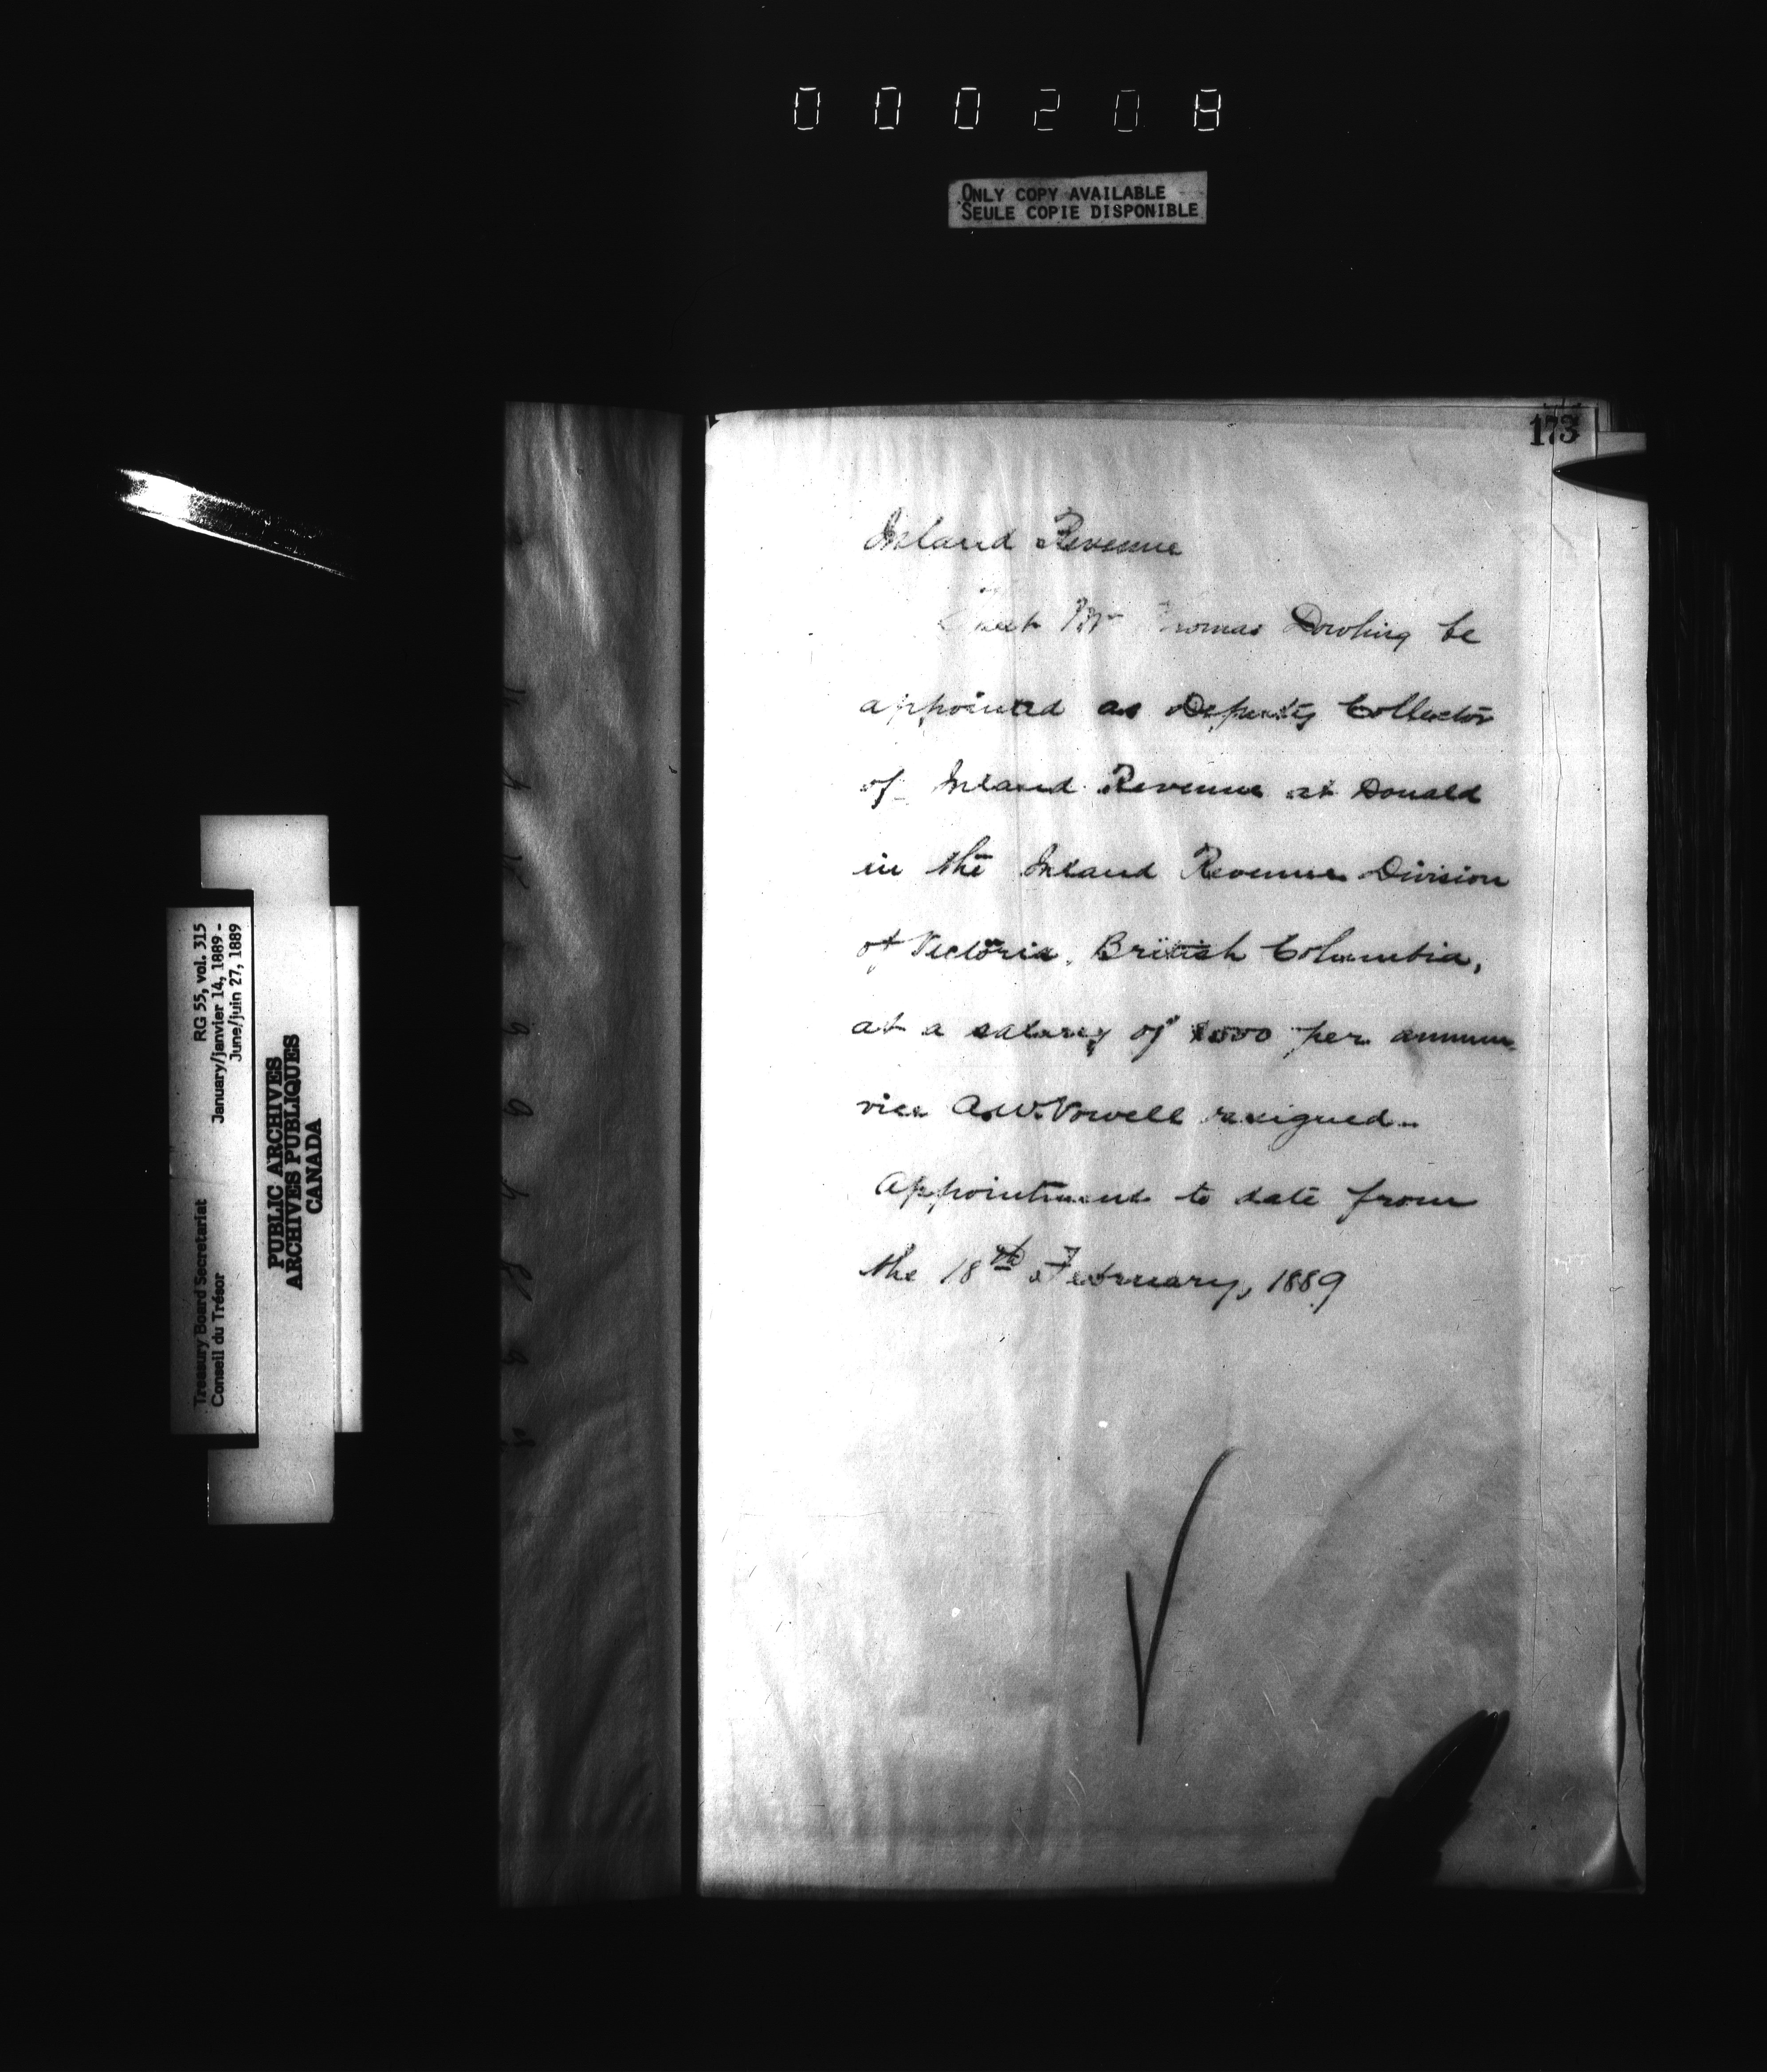 000208
ONLY COPY AVAILABLE
SEULE COPIE DISPONIBLE
173
Inland Revenue
That Mr Thomas Dowling be
appointed as Deputy Collector
of Inland Revenue at Donald
in the Inland Revenue Division
of Victoria, British Columbia,
at a salary of per annum
vice A.W. Vowell resigned..
Appointment to date from
the 18th February, 1889
RG 55, vol. 315
January/janvier 14, 1889 -
June/juin 27, 1889
Treasury Board Secretariat
Conseil du Trésor
PUBLIC ARCHIVES
ARCHIVES PUBLIQUES
CANADA